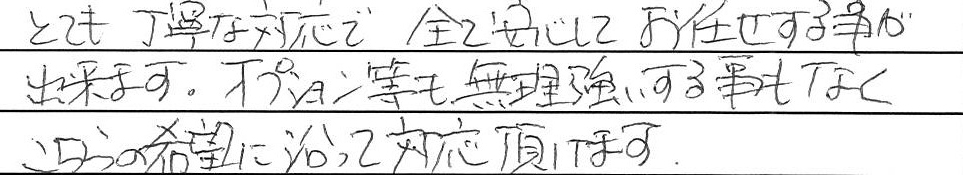 とても丁寧な対応で 全て安心して お任せする事が
出来ます。オプション等も無理強いする事もなく
こちらの希望に沿って対応頂けます.